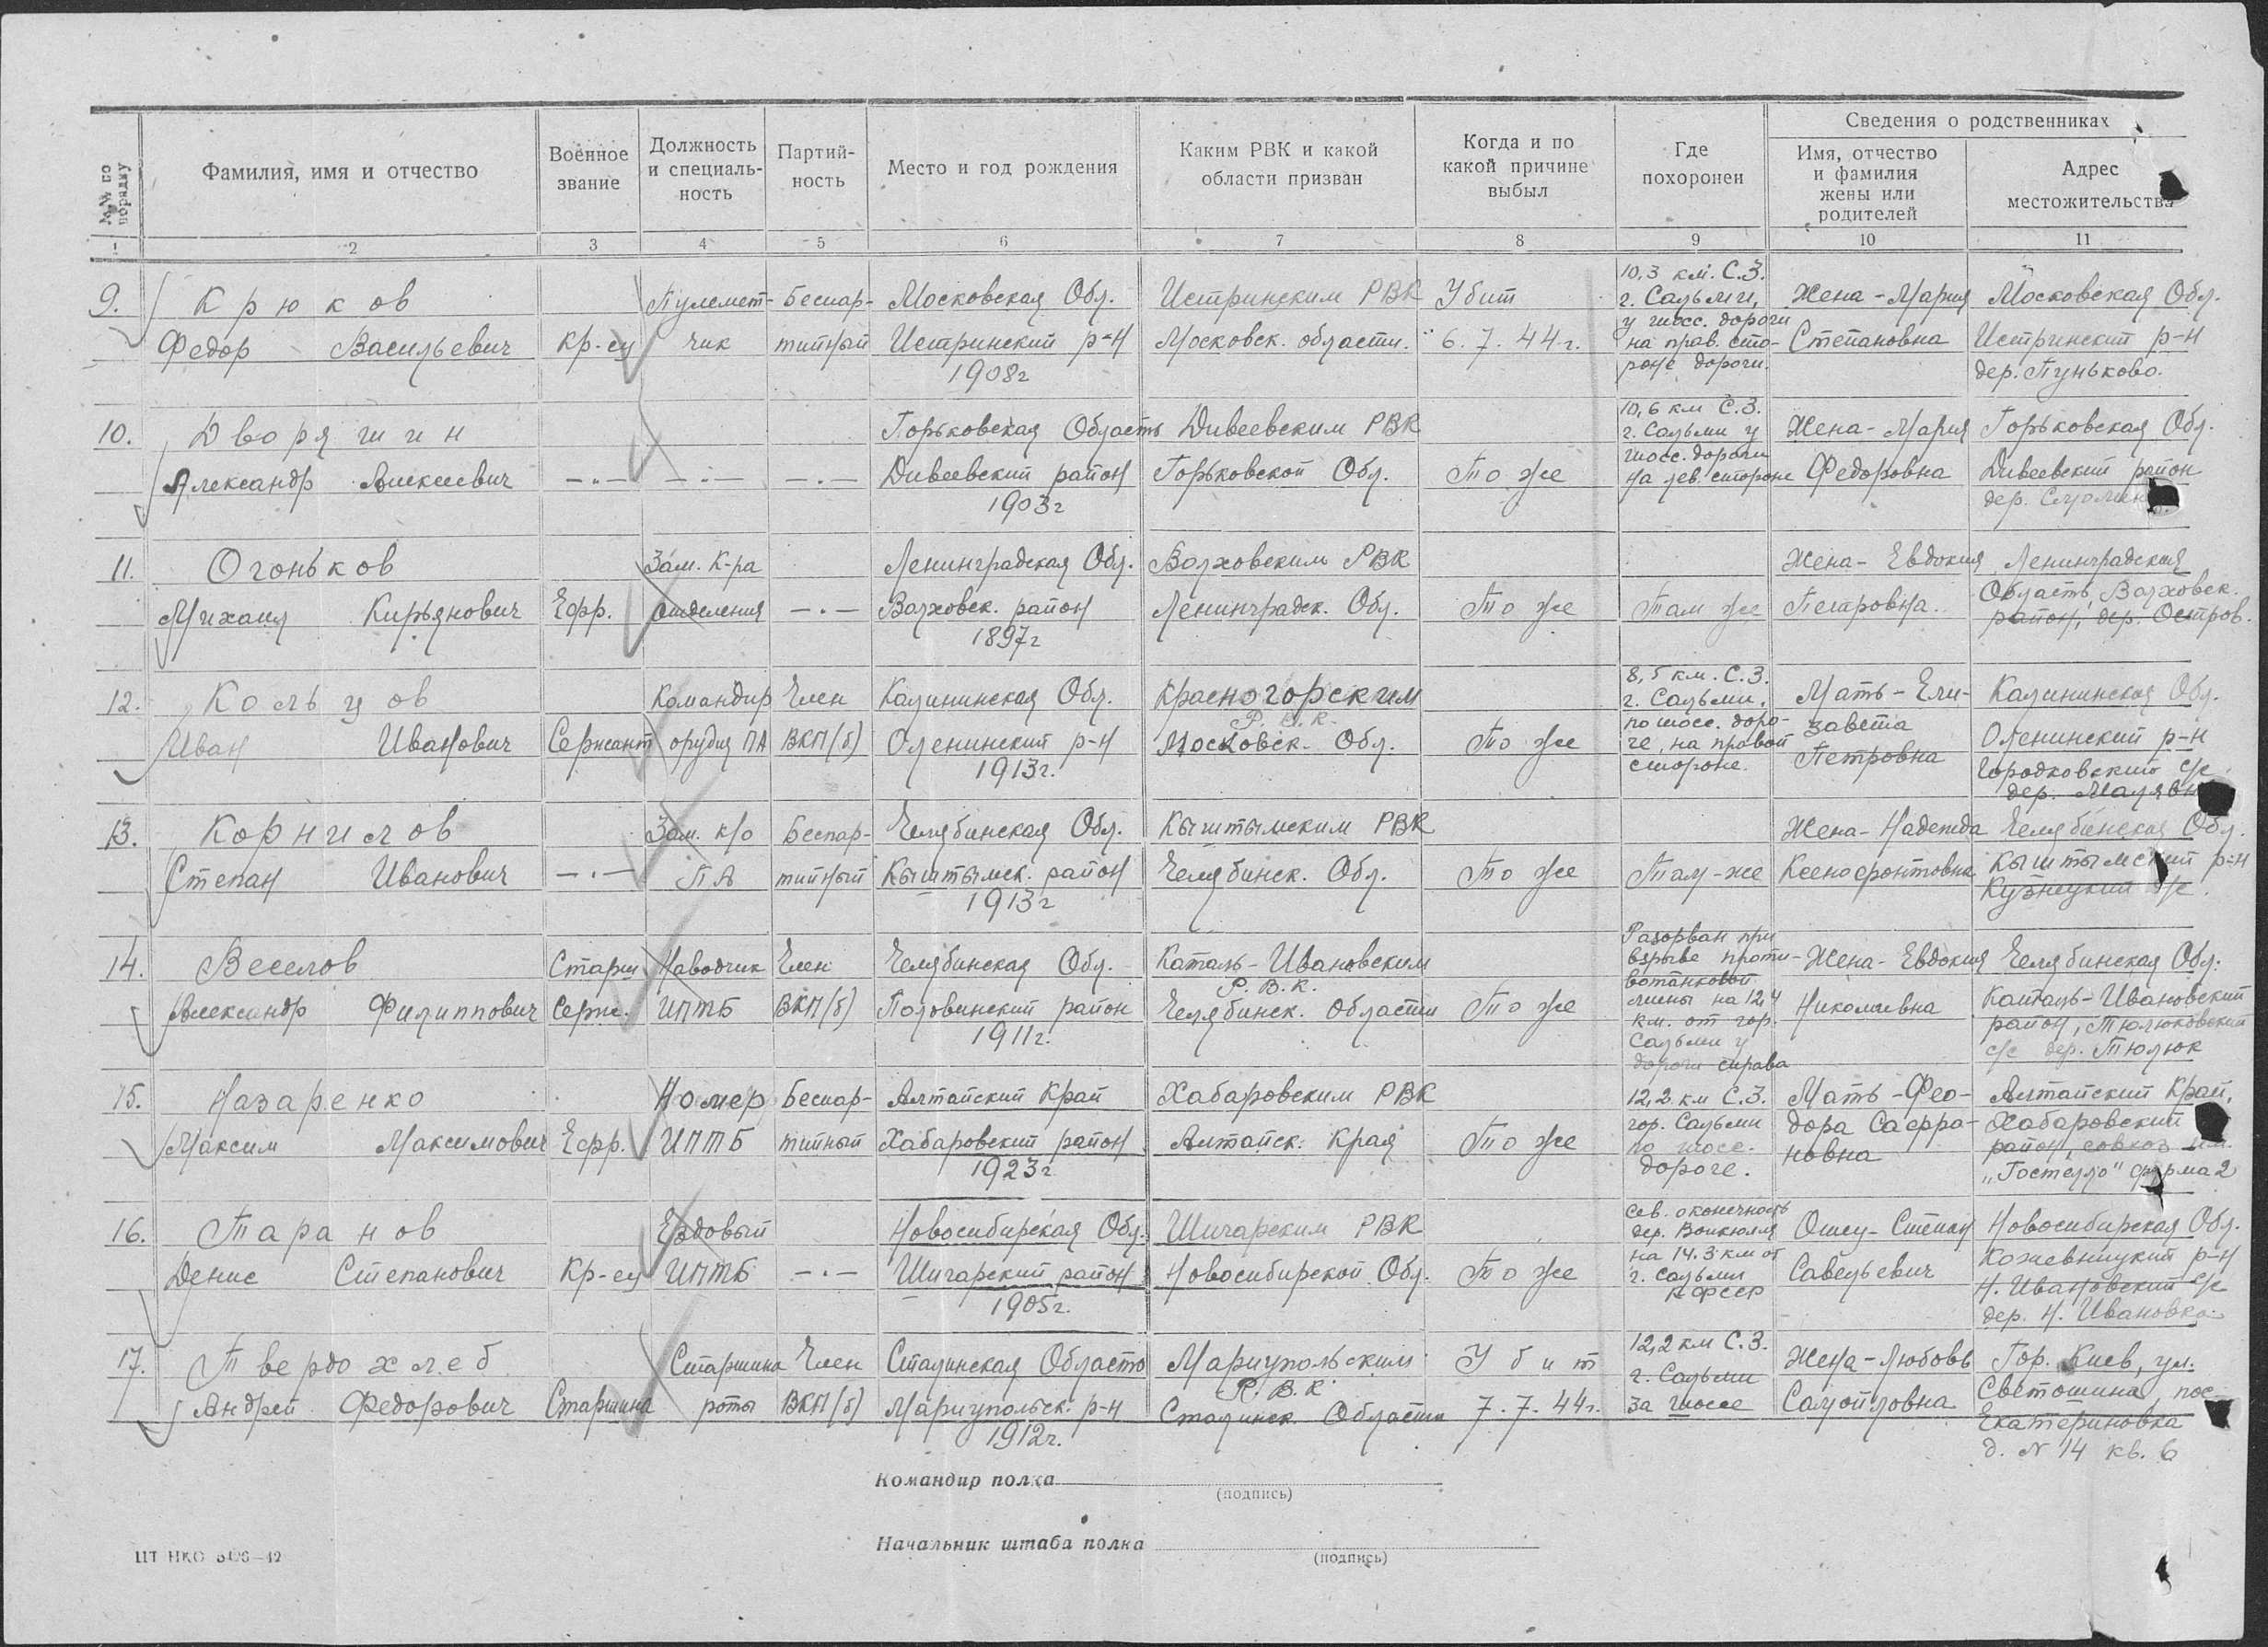 №№ по порядку
Фамилия, имя и отчество
Военное звание
Должность и специаль-ность
Партий-ность
Место и год рождения
Каким РВК и какой области призван
Когда и по какой причине выбыл
Где похоронен
Сведения о родственниках
Имя, отчество и фамилия жены или родителей
Адрес местожительства
1 2 3 4 5 6 7 8 9 10 11
9. Крюков
Федор Васильевич
кр-ец
Пулемет-
чик
Беспар-
тийный
Московская Обл.
Истринский р-н
1908г
Истринским РВК
Московск. области.
Убит
6.7.44г.
10,3 км. С.З.
г. Сальми,
у шосс. дороги
на прав. сто-
роне дороги.
Жена - Мария
Степановна
Московская Обл.
Истринский р-н
дер. Пуньково.
10. Дворяшин
Александр Алексеевич
—·—
—·—
—·—
Горьковская Область
Дивеевский район
1903г
Дивеевским РВК
Горьковской Обл.
То же
10,6 км С.З.
г. Сальми у
шосс. дороги
на лев. стороне
Жена - Мария
Федоровна
Горьковская Обл.
Дивеевский район
дер.
11. Огоньков
Михаил Кирьянович
Ефр.
Зам. К-ра
отделения
—·—
Ленинградская Обл.
Волховск. район
1897г
Волховским РВК
Ленинградск. Обл.
То же
Там же
Жена - Евдокия
Петровна.
Ленинградская
Область, Волховск.
район, дер. Остров.
12. Кольцов
Иван Иванович
Сержант
Командир
орудия ПА
Член
ВКП(б)
Калининская Обл.
Оленинский р-н
1913г.
Красногорским
Р.В.К.
Московск. Обл.
То же
8,5 км. С.З.
г. Сальми,
по шосс. доро-
ге, на правой
стороне.
Мать - Ели-
завета
Петровна
Калининская Обл.
Оленинский р-н
Городковский с/с
дер.
13. Корнилов
Степан Иванович
—·—
Зам. к/о
ПА
Беспар-
тийный
Челябинская Обл.
Кыштымск. район
1913г
Кыштымским РВК
Челябинск. Обл.
То же
Там-же
Жена - Надежда
Ксенофонтовна
Челябинская Обл.
Кыштымский р-н
Кузнецкий с/с.
14. Веселов
Александр Филиппович
Старш
Серж.
Наводчик
ИПТБ
Член
ВКП(б)
Челябинская Обл.
Половинский район
1911г.
Каталь-Ивановским
Р.В.К.
Челябинск. Области
То же
Разорван при
взрыве проти-
вотанковой
мины на 12,4
км. от гор.
Сальми у
дороги справа
Жена - Евдокия
Николаевна
Челябинская Обл.
Каталь-Ивановский
район, Тюлюковский
с/с дер. Тюлюк
15. Назаренко
Максим Максимович
Ефр.
Номер
ИПТБ
Беспар-
тийный
Алтайский Край
Хабаровский район
1923г
Хабаровским РВК
Алтайск. Края
То же
12,2 км С.З.
гор. Сальми
по шосс.
дороге.
Мать - Фео-
дора Сафро-
новна
Алтайский Край,
Хабаровский
район, совхоз им.
„Гостелло" ферма 2
16. Таранов
Денис Степанович
Кр-ец
Ездовый
ИПТБ
—·—
Новосибирская Обл.
Шигарский район
1905г.
Шигарским РВК
Новосибирской Обл.
То же
Сев. оконечность
дер.
на 14.3 км от
г. Сальми
КФССР
Отец - Степан
Савельевич
Новосибирская Обл.
Кожевницкий р-н
Н. Ивановский с/с
дер. Н. Ивановка.
17. Твердохлеб
Андрей Федорович
Старшина
Старшина
роты
Член
ВКП(б)
Сталинская Область
Мариупольск. р-н
1912г.
Мариупольским
Р.В.К.
Сталинск. Области
Убит
7.7.44г.
12,2 км С.З.
г. Сальми
за шоссе
Жена - Любовь
Самойловна
Гор. Киев, ул.
Светошина, пос.
Екатериновка
д. N 14 кв. 6
Командир полка
(подпись)
Начальник штаба полка
(подпись)